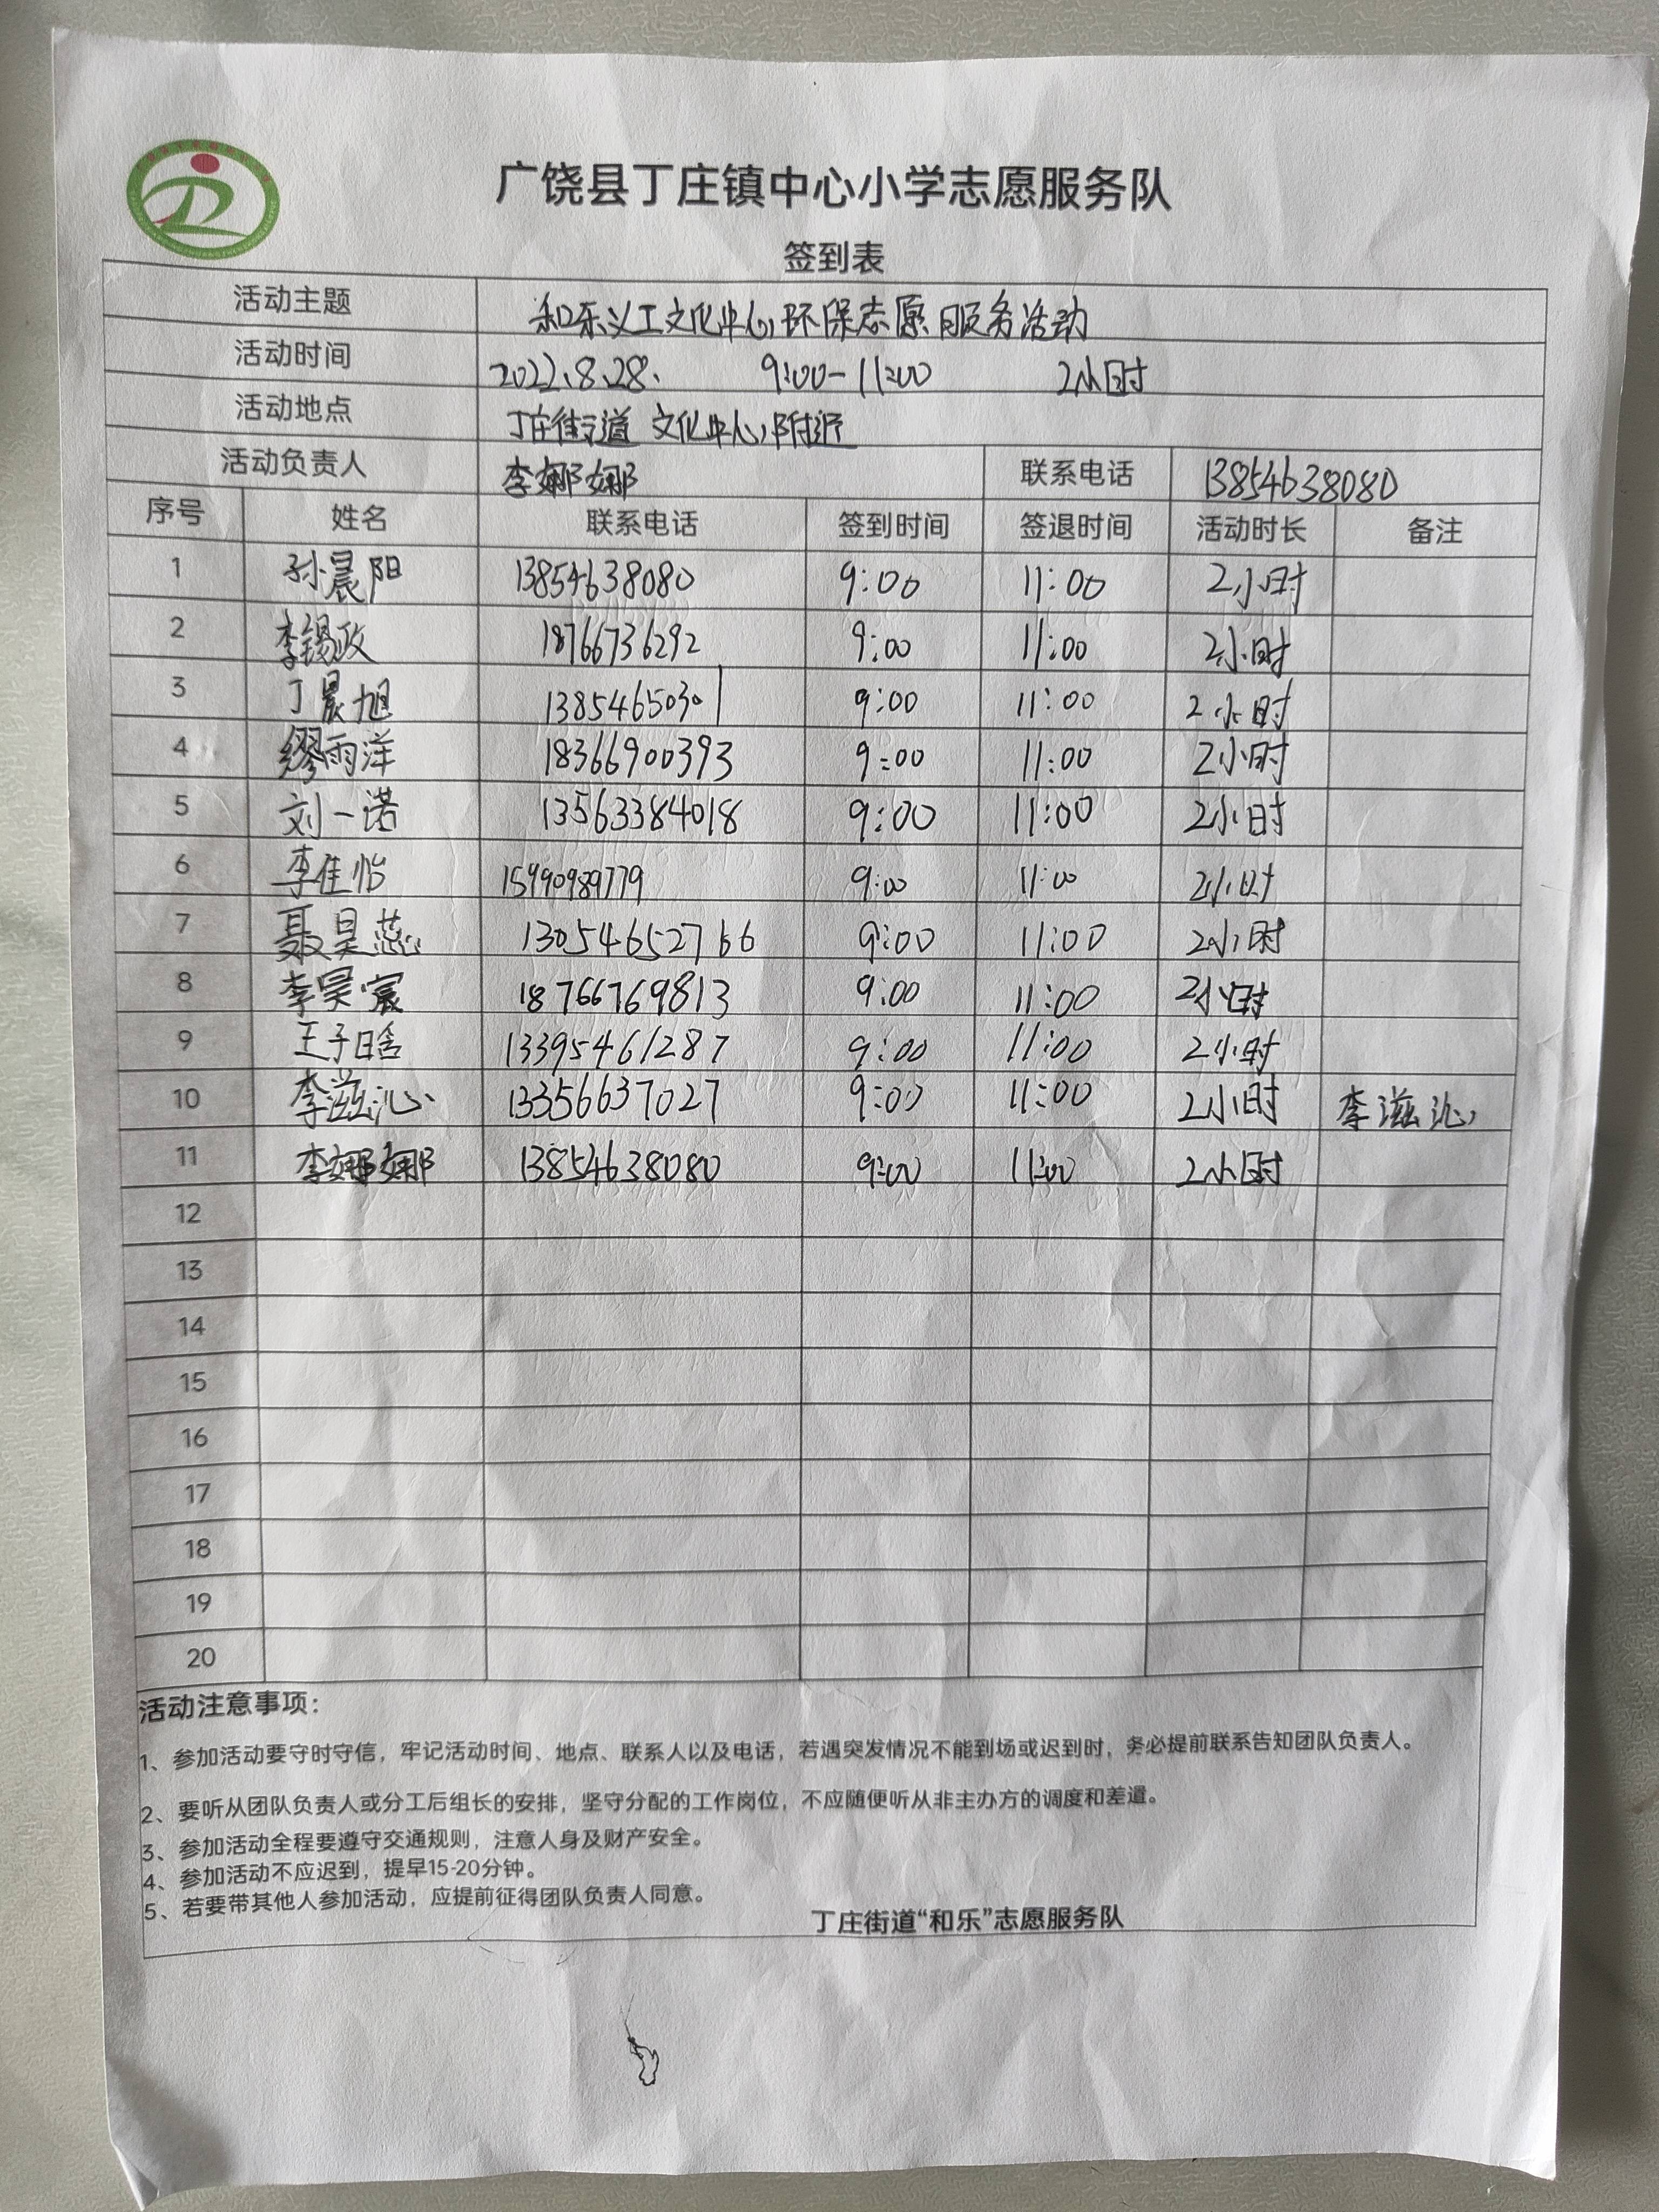 广饶县丁庄镇中心小学志愿服务队
签到表
活动主题 和乐义工文化中心环保志愿服务活动
活动时间 2022.8.28. 9:00-11:00 2小时
活动地点 丁庄街道 文化中心附近
活动负责人 李娜娜 联系电话 13854638080
序号 姓名 联系电话 签到时间 签退时间 活动时长 备注
1 孙晨阳 13854638080 9:00 11:00 2小时
2 李锡政 18766736292 9:00 11:00 2小时
3 丁晨旭 13854650301 9:00 11:00 2小时
4 缪雨洋 18366900393 9:00 11:00 2小时
5 刘一诺 13563384018 9:00 11:00 2小时
6 李佳怡 15990989779 9:00 11:00 2小时
7 聂昊蕊 13054652766 9:00 11:00 2小时
8 李昊宸 18766769813 9:00 11:00 2小时
9 王子晗 13395461287 9:00 11:00 2小时
10 李滋沁 13356637027 9:00 11:00 2小时 李滋沁
11 李娜娜 13854638080 9:00 11:00 2小时
12
13
14
15
16
17
18
19
20
活动注意事项：
1、参加活动要守时守信，牢记活动时间、地点、联系人以及电话，若遇突发情况不能到场或迟到时，务必提前联系告知团队负责人。
2、要听从团队负责人或分工后组长的安排，坚守分配的工作岗位，不应随便听从非主办方的调度和差遣。
3、参加活动全程要遵守交通规则，注意人身及财产安全。
4、参加活动不应迟到，提早15-20分钟。
5、若要带其他人参加活动，应提前征得团队负责人同意。
丁庄街道“和乐”志愿服务队